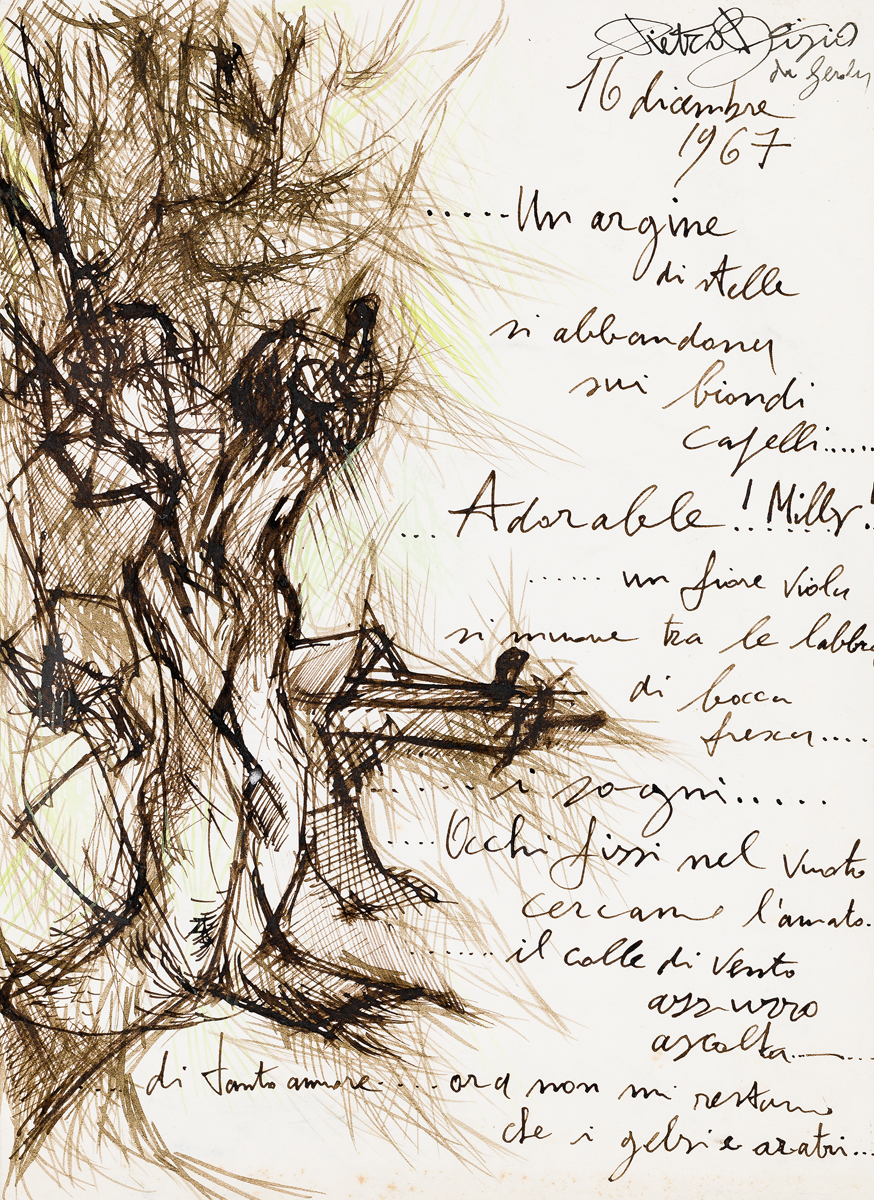 Pietro
da
16 dicembre
1967
.....Un argine
di stelle
si abbandona
sui biondi
capelli......
...Adorabile! Milly!
...... un fiore viola
si muove tra le labbra
di bocca
fresca....
...... i sogni.....
....Occhi fissi nel vuoto
cercano l'amato.
...... il colle di vento
azzurro
ascolta..........
.... di tanto amore.... ora non mi restano
che i gelsi e aratri...